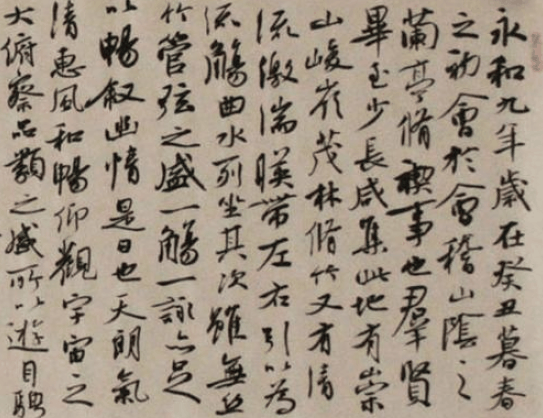 永和九年歲在癸丑暮春
之初會於會稽山陰之
蘭亭脩禊事也羣賢
畢至少長咸集此地有崇
山峻嶺茂林脩竹又有清
流激湍暎帶左右引以為
流觴曲水列坐其次雖無絲
竹管弦之盛一觴一詠亦足
以暢敘幽情是日也天朗氣
清惠風和暢仰觀宇宙之
大俯察品類之盛所以遊目騁